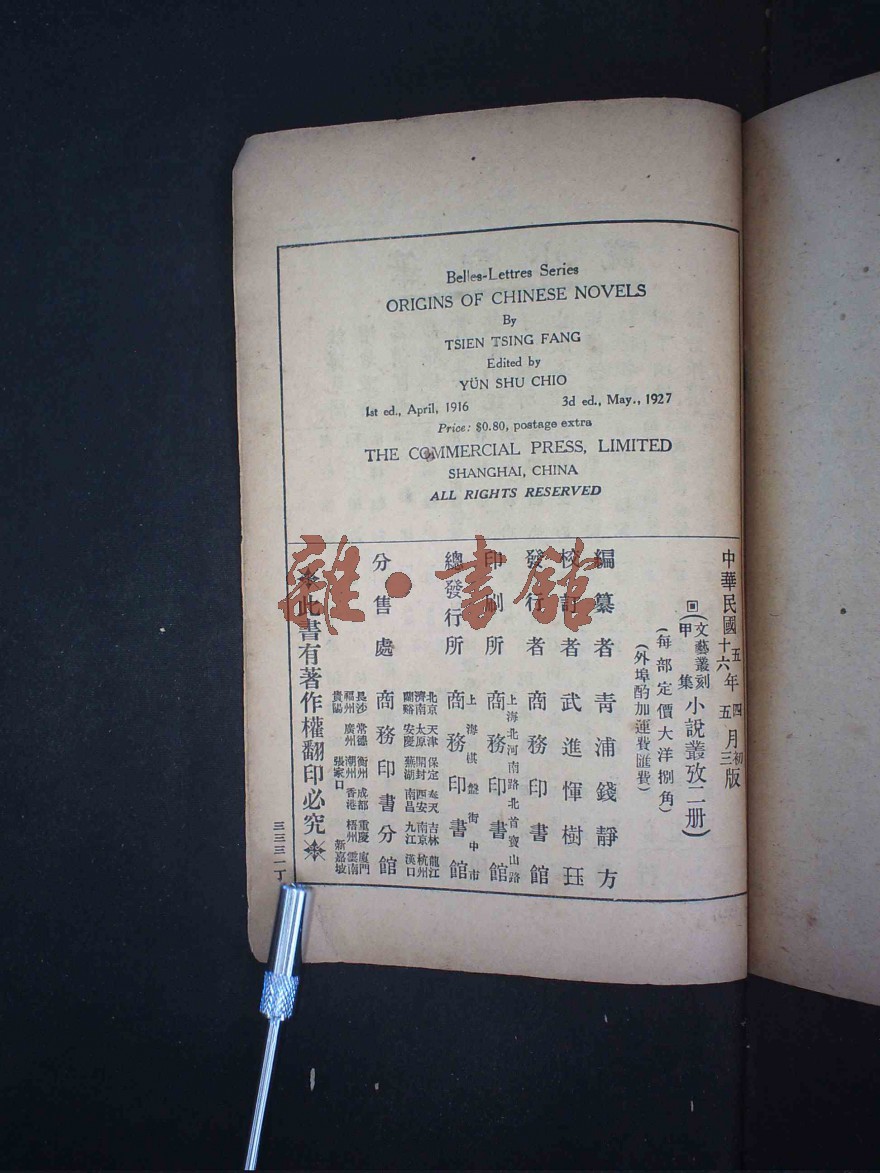 Belles-Lettres Series
ORIGINS OF CHINESE NOVELS
By
TSIEN TSING FANG
Edited by
YÜN SHU CHIO
1st ed., April, 1916 3d ed., May., 1927
Price: $0.80, postage extra
THE COMMERCIAL PRESS, LIMITED
SHANGHAI, CHINA
ALL RIGHTS RESERVED
中華民國五年四月初版
十六年五月三版
回(文藝叢刻甲集小說叢攷二册)
(每部定價大洋捌角)
(外埠酌加運費匯費)
編纂者 青浦錢靜方
校訂者 武進惲樹珏
發行者 商務印書館
上海北河南路北首寶山路
印刷所 商務印書館
上海棋盤街中市
總發行所 商務印書館
北京 天津 保定 奉天 吉林 龍江
濟南 太原 開封 西安 南京 杭州
蘭谿 安慶 蕪湖 南昌 九江 漢口
分售處 商務印書分館
長沙 常德 衡州 成都 重慶 廈門
福州 廣州 潮州 香港 梧州 雲南
貴陽 張家口 新嘉坡
此書有著作權翻印必究
三三三一丁
雜·書館